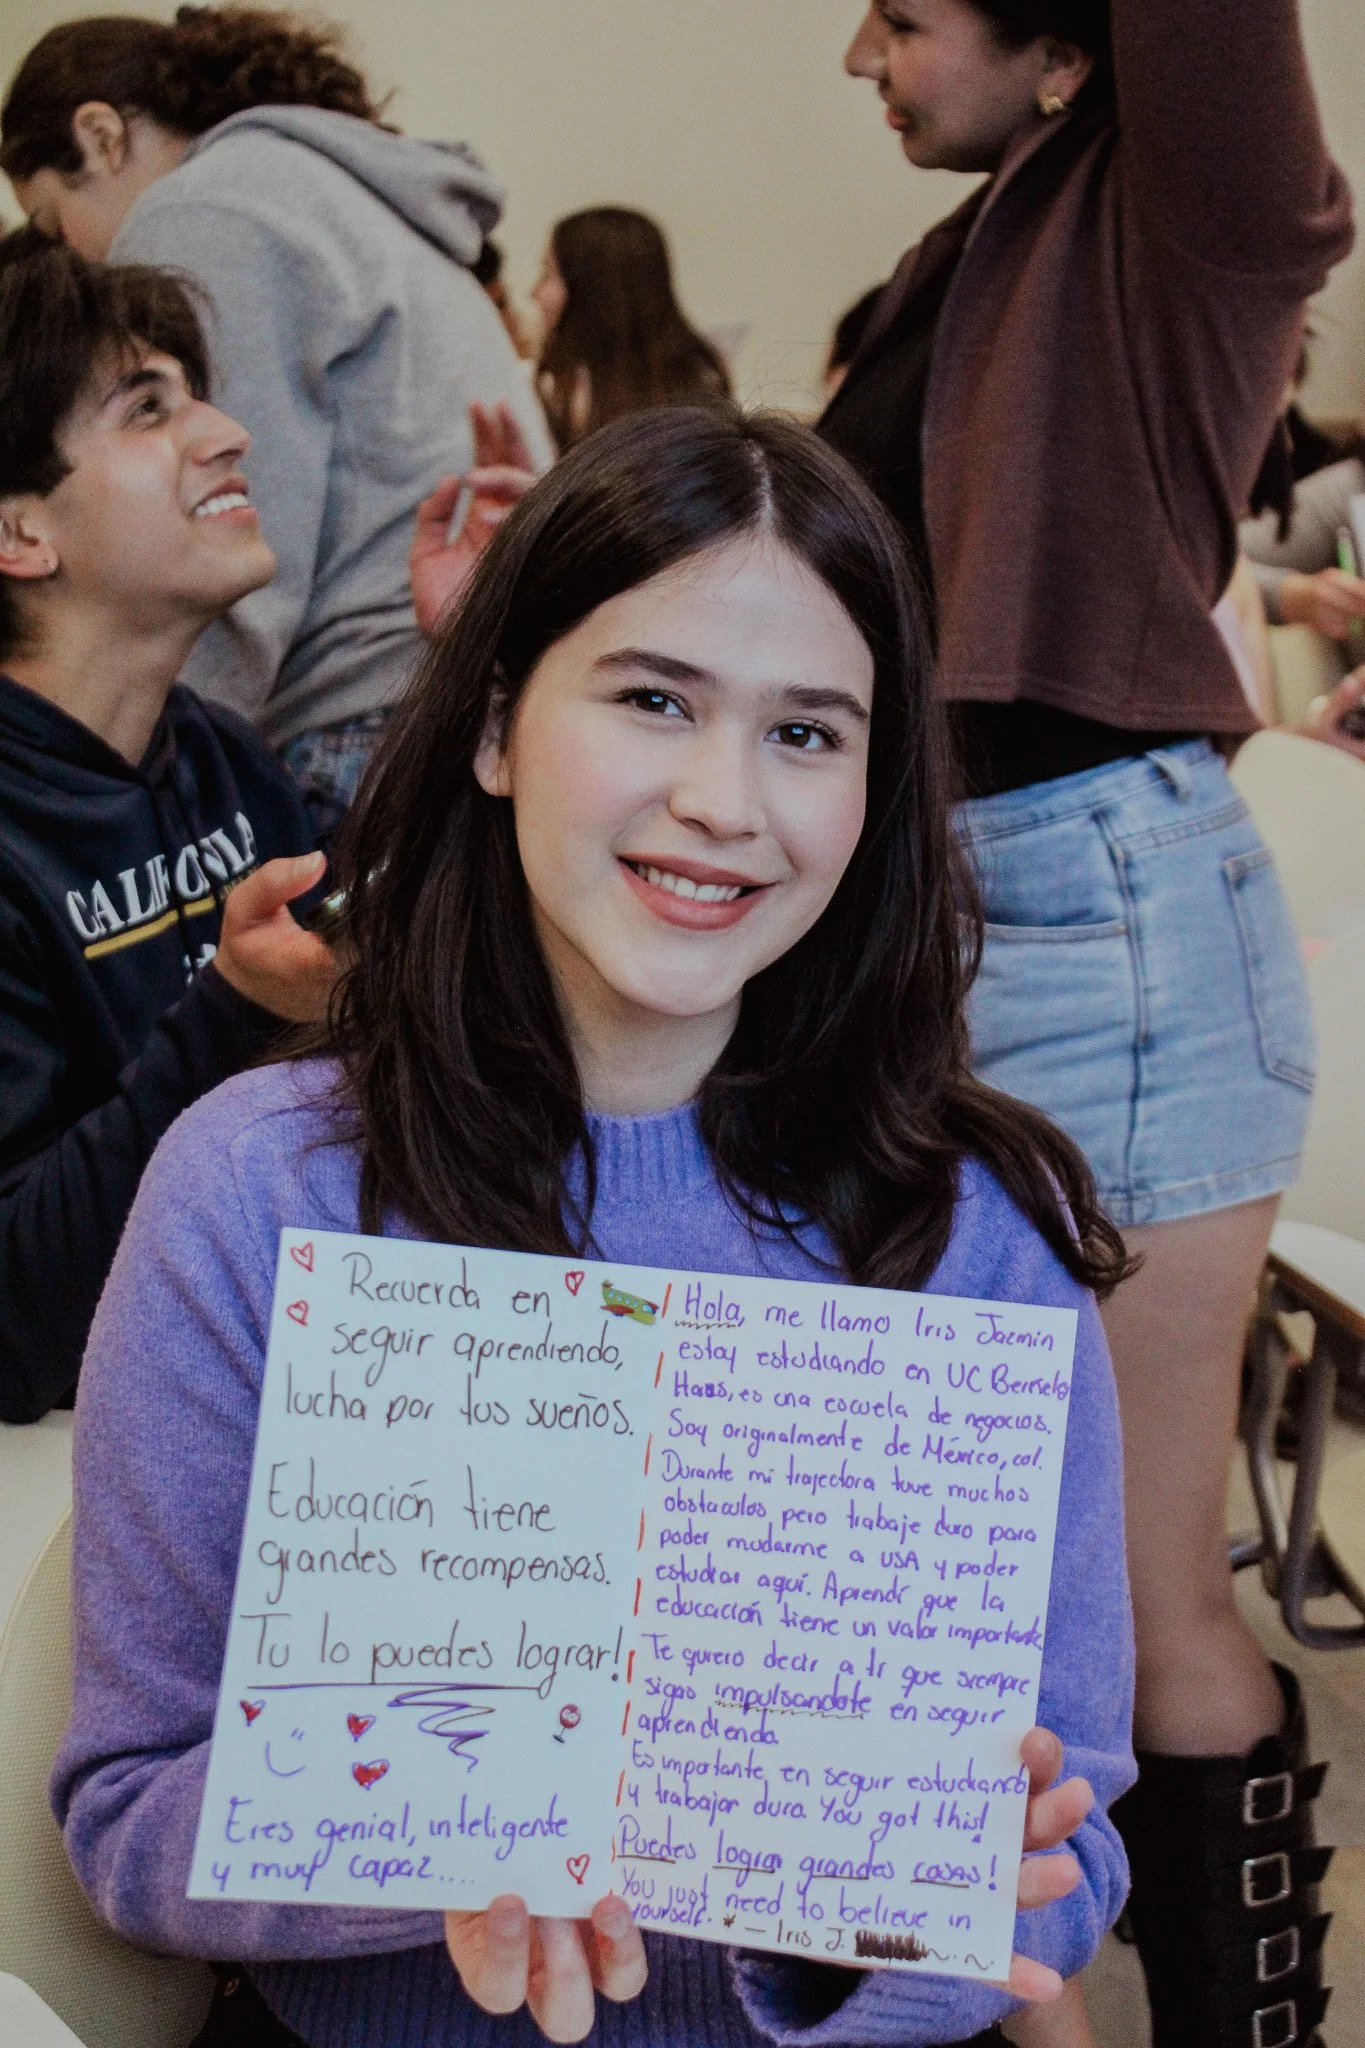 CALIFORNIA
Recuerda en
seguir aprendiendo,
lucha por tus sueños.
Educación tiene
grandes recompensas.
Tu lo puedes lograr!
Eres genial, inteligente
y muy capaz....
Hola, me llamo Iris Jazmin
estoy estudiando en UC Berkeley
Haas, es una escuela de negocios.
Soy originalmente de México, col.
Durante mi trajectora tuve muchos
obstaculos, pero trabaje duro para
poder mudarme a USA y poder
estudiar aquí. Aprendí que la
educación tiene un valor importante
Te quiero decir a ti que siempre
sigas impulsandote en seguir
aprendienda
Es importante, en seguir estudiando
y trabajar dura. You got this!
Puedes lograr grandes cosas!
You just need to believe in
yourself. * — Iris J.